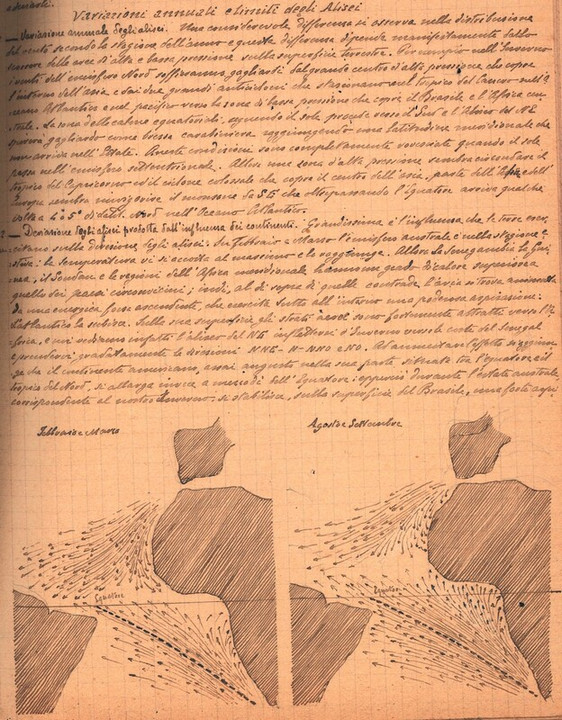 Variazioni annuali e limiti degli Alisei
— Variazione annuale degli alisei. Una considerevole differenza si osserva nella distribuzione
del vento secondo la stagione dell'anno e questa differenza dipende manifestamente dallo
delle aree d'alta e bassa pressione sulla superficie terrestre. Per esempio nell'Inverno
i venti dell'emisfero Nord soffieranno gagliardi dal grande centro d'alta pressione che copre
l'interno dell'asia e dai due grandi anticicloni che stazionano sul tropico del Cancro nell'O
ceano Atlantico e nel pacifico verso la zona di bassa pressione che copre il Brasile e l'Africa cen
trale. La zona delle calme equatoriali, seguendo il sole prende verso il Sud e l'Aliseo del NE
spirerà gagliardo come brezza raggiungendo una latitudine meridionale che
non arriva nell'Estate. Queste condizioni sono completamente rovesciate quando il sole
passa nell'emisfero settentrionale. Allora una zona d'alta pressione sembra circondare il
tropico del Capricorno ed il ciclone colossale che copre il centro dell'asia, parte dell'Africa e dell'
Europa sembra rinvigorire il monsone da SE che oltrepassando l'Equatore arriva qualche
volta a 4 o 5° di Latit. Nord nell'Oceano Atlantico.
— Deviazione degli alisei prodotta dall'influenza dei continenti. Grandissima è l'influenza che le terre eser
citano sulla direzione degli alisei. In Febbraio e Marzo l'emisfero australe è nella stagione e
stiva: la temperatura vi si accosta al massimo e lo raggiunge. Allora la Senegambia la Gui
nea, il Soudan e le regioni dell'Africa meridionale hanno un grado di calore superiore a
quello dei paesi circonvicini; indi, al di sopra di quelle contrade l'aria si trova animata
da una energica forza ascendente, che esercita tutto all'intorno una poderosa aspirazione:
l'Atlantico la subisce. Sulla sua superficie gli strati aerei sono fortemente attratti verso l'A
frica, e noi vediamo infatti l'aliseo del NE inflettersi d'Inverno verso le coste del Senegal
e prendervi gradatamente le direzioni NNE - N - NNO e NO. Ad aumentare l'effetto si aggiun
ga che il continente americano, assai angusto nella sua parte situata tra l'equatore e il
tropico del Nord, si allarga invece a mezzodì dell'Equatore: epperciò durante l'estate australe
corrispondente al nostro Inverno, si stabilisce, sulla superficie del Brasile, una forte aspi
Febbraio e Marzo
Agosto e Settembre
Equatore
Equatore